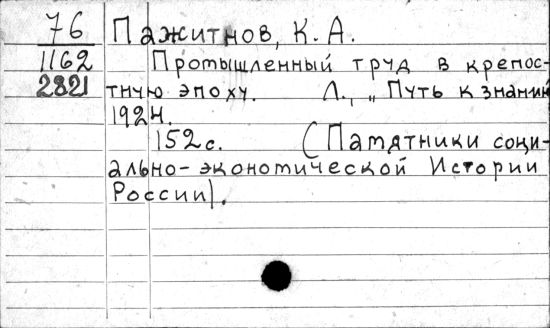 76 Пажитнов, К. А.
1162 Промышленный труд в крепос-
2821 тную эпоху. Л., „Путь к знанию
1924.
152 с. (Памятники соци-
ально-экономической Истории
России).